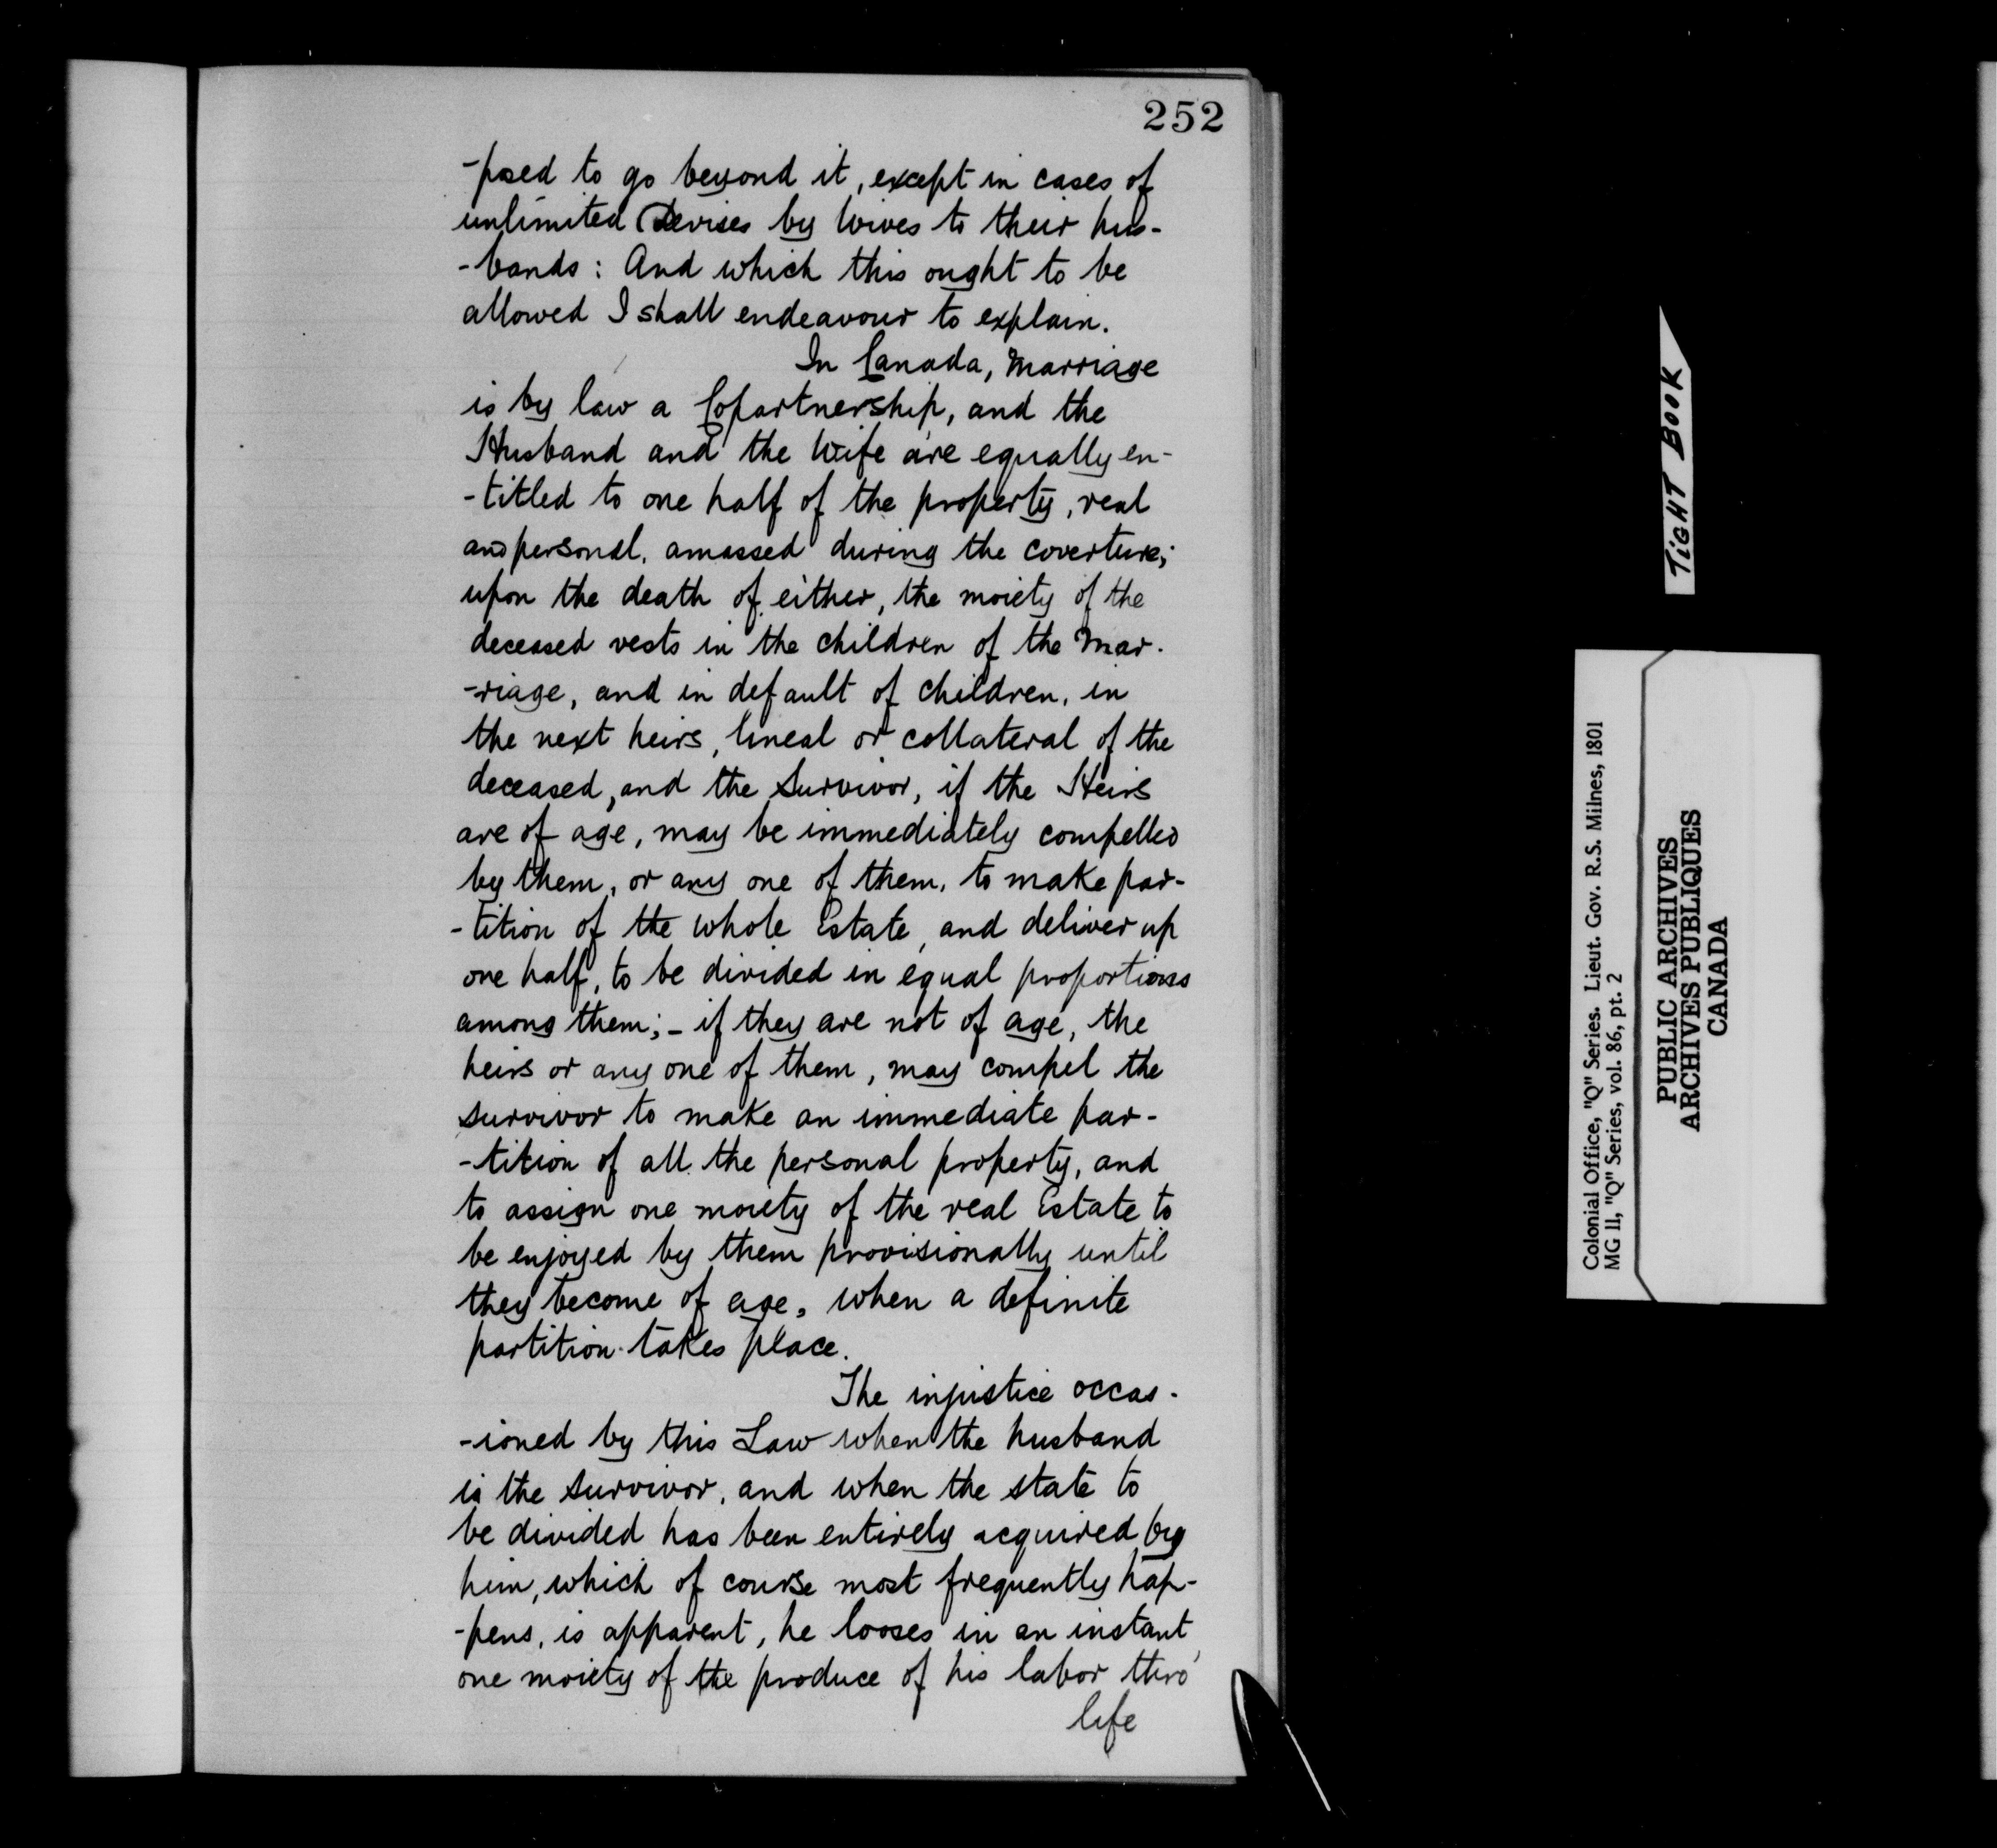 252
-posed to go beyond it, except in cases of
unlimited Devises by Wives to their hus-
-bands: And which this ought to be
allowed I shall endeavour to explain.
In Canada, Marriage
is by law a Copartnership, and the
Husband and the Wife are equally en-
-titled to one half of the property, real
and personal, amassed during the coverture;
upon the death of either, the moiety of the
deceased vests in the children of the Mar-
-riage, and in default of children, in
the next heirs, lineal or collateral of the
deceased, and the Survivor, if the Heirs
are of age, may be immediately compelled
by them, or any one of them, to make par-
-tition of the whole Estate, and deliver up
one half, to be divided in equal proportions
among them; - if they are not of age, the
heirs or any one of them, may compel the
survivor to make an immediate par-
-tition of all the personal property, and
to assign one moiety of the real Estate to
be enjoyed by them provisionally until
they become of age, when a definite
partition takes place.
The injustice occas-
-ioned by this Law when the husband
is the survivor, and when the state to
be divided has been entirely acquired by
him, which of course most frequently hap-
-pens, is apparent, he looses in an instant
one moiety of the produce of his labor thro'
life
TIGHT BOOK
Colonial Office, "Q" Series. Lieut. Gov. R.S. Milnes, 1801
MG 11, "Q" Series, vol. 86, pt. 2
PUBLIC ARCHIVES
ARCHIVES PUBLIQUES
CANADA